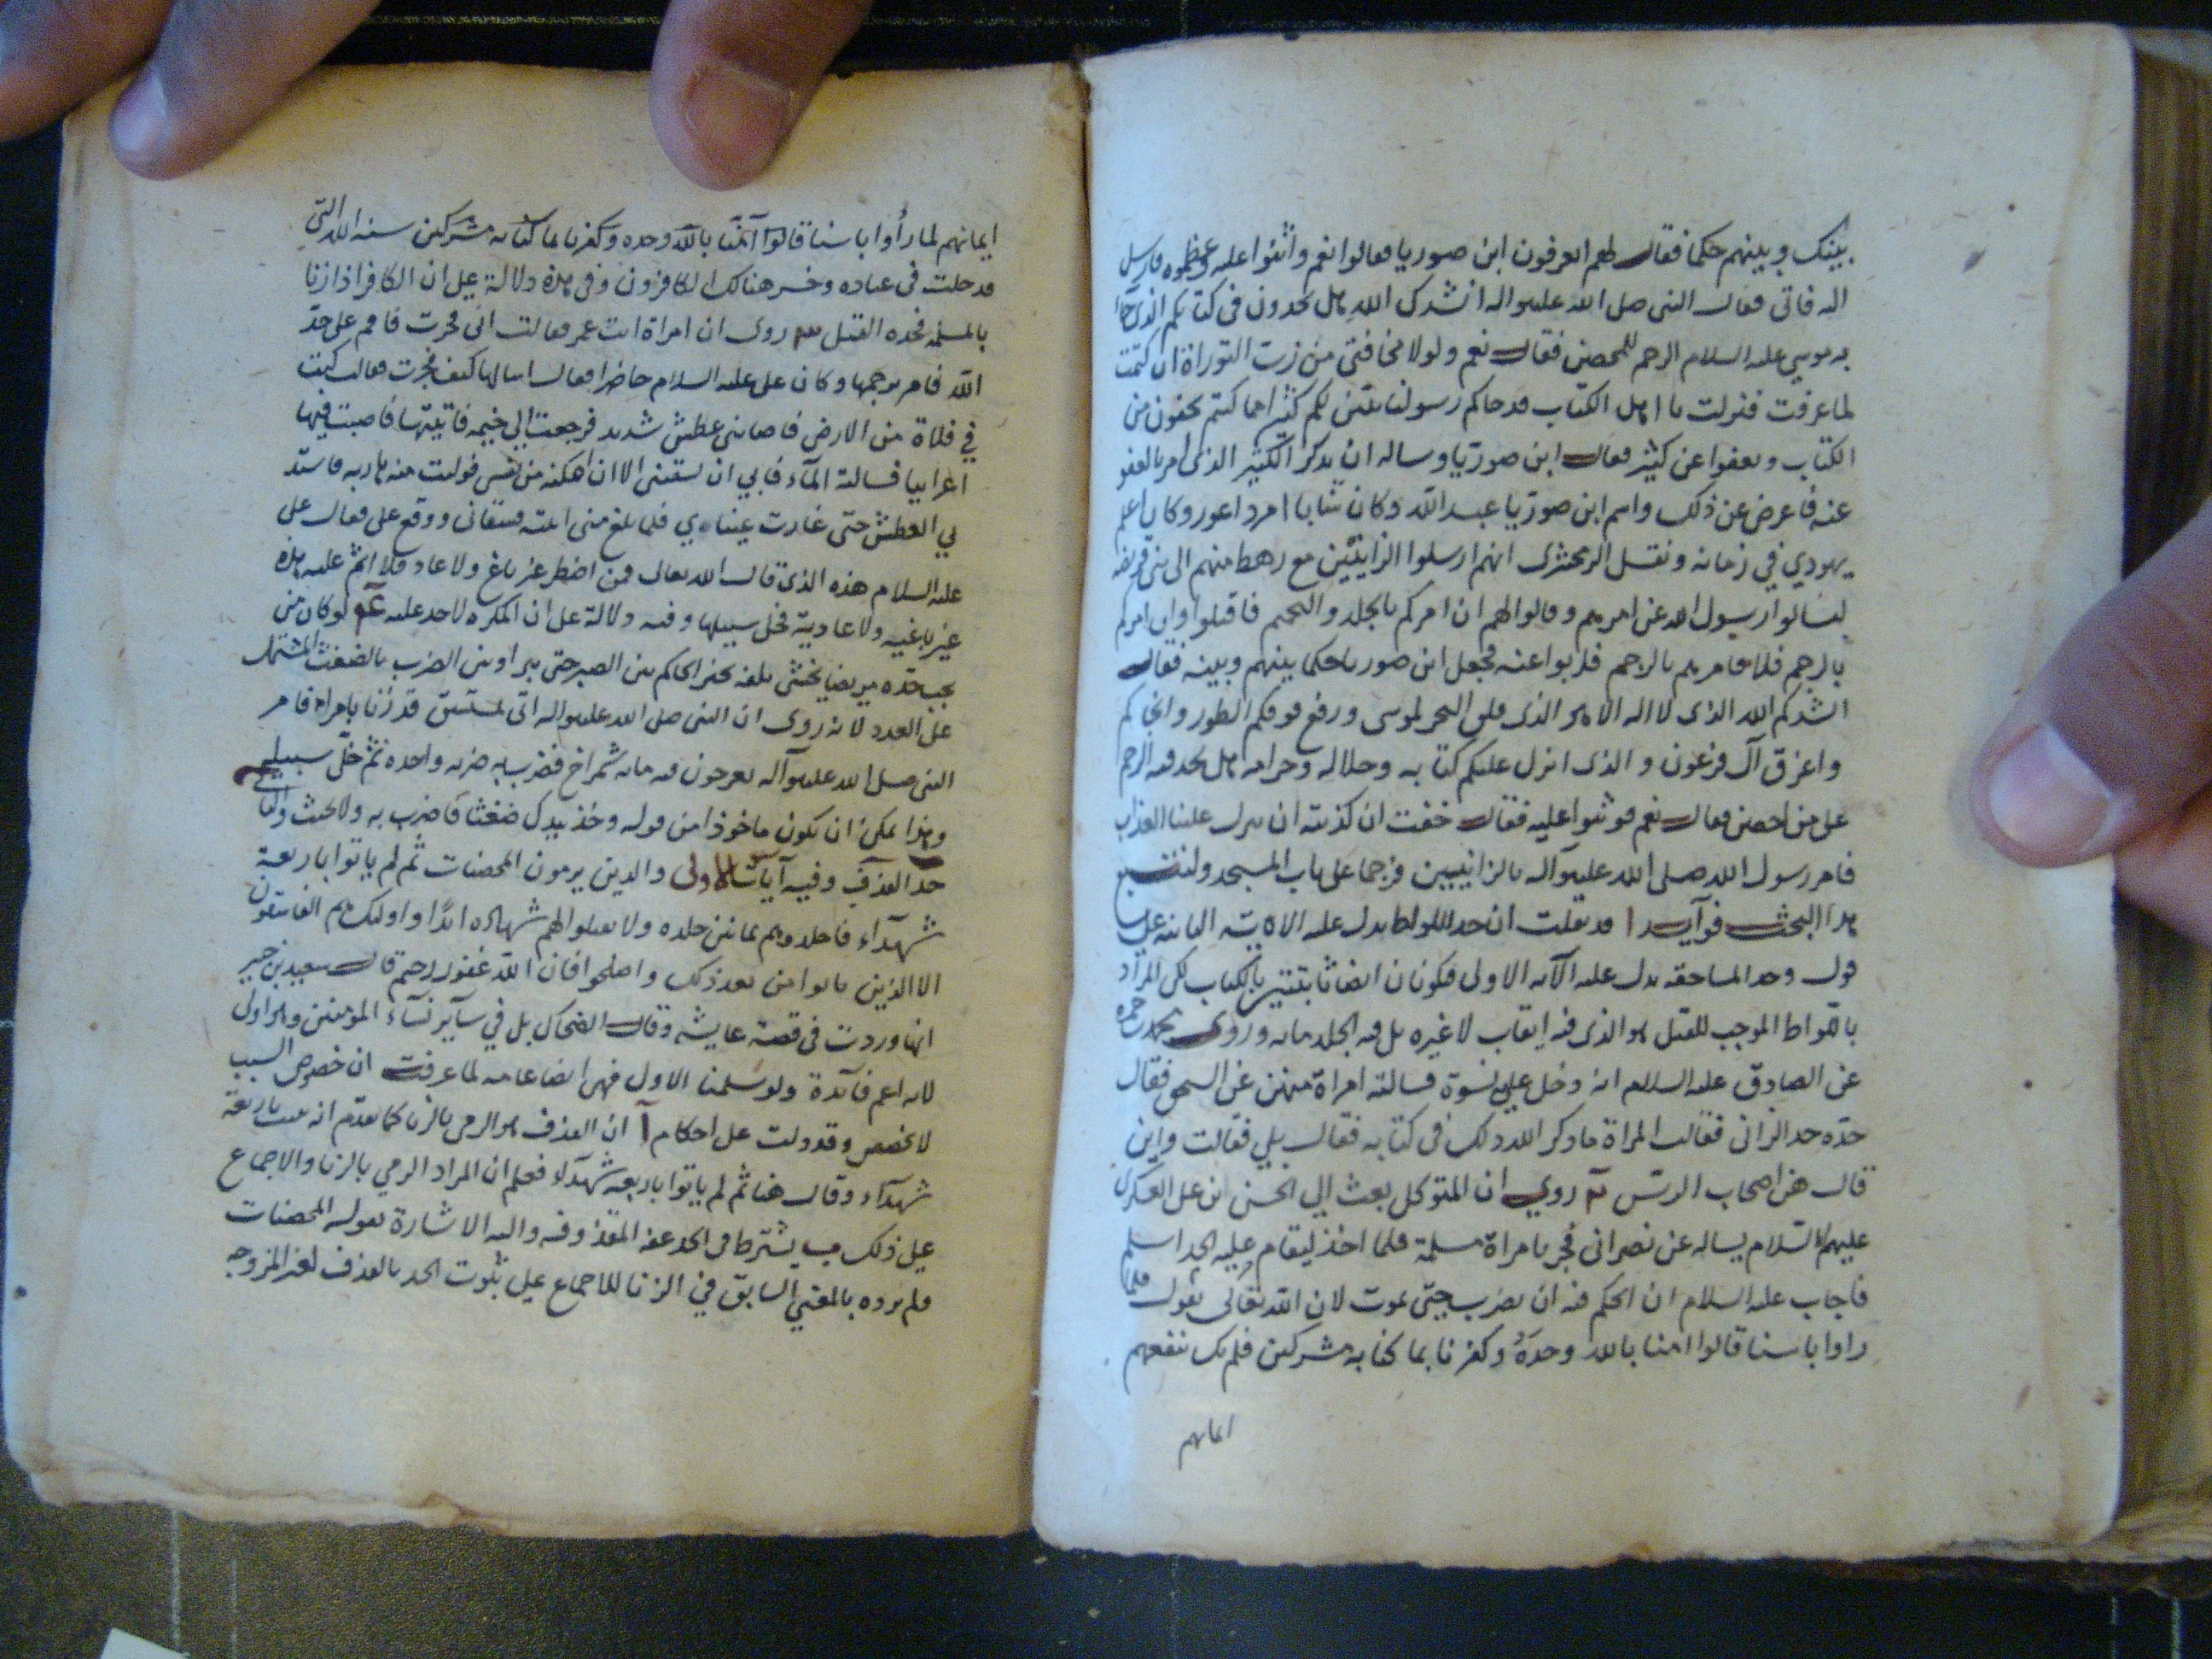 بينك وبينهم حكما فقال لهم اتعرفون ابن صوريا فقالوا نعم واثنوا عليه وعظموه فارسل
اليه فاتى فقال النبى صلى الله عليه واله انشدك الله هل تجدون فى كتابكم الذى جاء
به موسي عليه السلام الرجم للمحصن فقال نعم ولولا مخافتى من رب التوراة ان كتمت
لما عرفت فنزلت يا اهل الكتاب قد جاكم رسولنا يبين لكم كثيرا مما كنتم تخفون من
الكتاب ويعفوا عن كثير فقال ابن صوريا وساله ان يذكر الكثير الذى امر بالعفو
عنه فاعرض عن ذلك واسم ابن صوريا عبد الله وكان شابا امرد اعور وكان اعلم
يهودي في زمانه ونقل الزمخشرى انهم ارسلوا الزانيين مع رهط منهم الى بنى قريظه
ليسالوا رسول الله عن امرهم وقالوا لهم ان امركم بالجلد والتحميم فاقبلوا وان امركم
بالرجم فلا فامرهم بالرجم فابوا عنه فجعل ابن صوريا حكما بينهم وبينه فقال
انشدكم الله الذى لا اله الا هو الذى فلق البحر لموسى ورفع فوقكم الطور وانجاكم
واغرق آل فرعون والذى انزل عليكم كتابه وحلاله وحرامه هل تجد فيه الرجم
على من احصن فقال نعم فوثبوا عليه فقال خفت ان كذبته ان ينزل علينا العذاب
فامر رسول الله صلى الله عليه وآله بالزانيين فرجما على باب المسجد ولنتبع
هذا البحث فوآيد ا قد نقلت ان حد اللواط يدل عليه الاية الثانيه على
قول وحد المساحقه يدل عليه الآيه الاولى فيكونان ايضا ثابتتين بالكتاب لكن المراد
باللواط الموجب للقتل هو الذى فيه ايقاب لا غيره بل فيه الجلد مايه وروى محمد بن حمزه
عن الصادق عليه السلام انه دخل عليه نسوة فسالته امراة منهن عن السحق فقال
حده حد الزانى فقالت المراة ما ذكر الله ذلك فى كتابه فقال بلي فقالت واين
قال هن اصحاب الرس ٢ روي ان المتوكل بعث الى الحسن ابن على العسكرى
عليهما السلام يساله عن نصرانى فجر بامراة مسلمة فلما اخذ ليقام عليه الحد اسلم
فاجاب عليه السلام ان الحكم فيه ان يضرب حتى يموت لان الله تعالى يقول فلما
راوا باسنا قالوا امنا بالله وحده وكفرنا بما كنا به مشركين فلم يك ينفعهم
ايمانهم
ايمانهم لما رأوا باسنا قالوا آمنا بالله وحده وكفرنا بما كنا به مشركين سنه الله التى
قد خلت فى عباده وخسر هنالك الكافرون وفى هذه دلالة على ان الكافر اذا زنا
بالمسلمه فحده القتل ٣ روى ان امراة اتت عمر فقالت انى فجرت فاقم على حد
الله فامر برجمها وكان على عليه السلام حاضرا فقال اسالها كيف فجرت فقالت كنت
في فلاة من الارض فاصابنى عطش شديد فرجعت الى خيمه فاتيتها فاصبت فيها
اعرابيا فسالته المآء فابي ان يسقينى الا ان امكنه من نفسى فوليت منه هاربه فاشتد
بي العطش حتى غارت عيناى فلما بلغ منى اتيته فسقانى ووقع على فقال على
عليه السلام هذه الذى قال الله تعالى فمن اضطر غير باغ ولا عاد فلا اثم عليه هذه
غير باغيه ولا عادية فخل سبيلها وفيه دلالة على ان المكره لا حد عليه ٤ لو كان من
يجب حده مريضا يخشى تلفه تخير الحاكم بين الصبر حتى يبرا وبين الضرب بالضغث المشتمل
على العدد لانه روى ان النبى صلى الله عليه واله اتى بمستسق قد زنا بامراه فامر
النبى صلى الله عليه وآله بعرجون فيه مايه شمراخ فضرب به ضربه واحده ثم خلى سبيله
وهذا يمكن ان يكون ماخوذا من قوله وخذ بيدك ضغثا فاضرب به ولا تحنث والثانى
حد القذف وفيه آيات الاولى والذين يرمون المحصنات ثم لم ياتوا باربعة
شهدآء فاجلدوهم ثمانين جلده ولا تقبلوا لهم شهاده ابدا واولئك هم الفاسقون
الا الذين تابوا من بعد ذلك واصلحوا فان الله غفور رحيم قال سعيد بن جبير
انها وردت فى قصة عايشه وقال الضحاك بل في سآير نسآء المؤمنين وهو اولى
لانه اعم فآئدة ولو سلمنا الاول فهى ايضا عامه لما عرفت ان خصوص السبب
لا يخصص وقد دلت على احكام آ ان القذف هو الرمى بالزنا كما تقدم انه يثبت باربعة
شهدآء وقال هنا ثم لم ياتوا باربعه شهدآء فعلم ان المراد الرمي بالزنا والاجماع
على ذلك ب يشترط فى الحد عفه المقذوف واليه الاشارة بقوله المحصنات
فلم يرده بالمعنى السابق في الزنا للاجماع على ثبوت الحد بالقذف لغير المزوجه